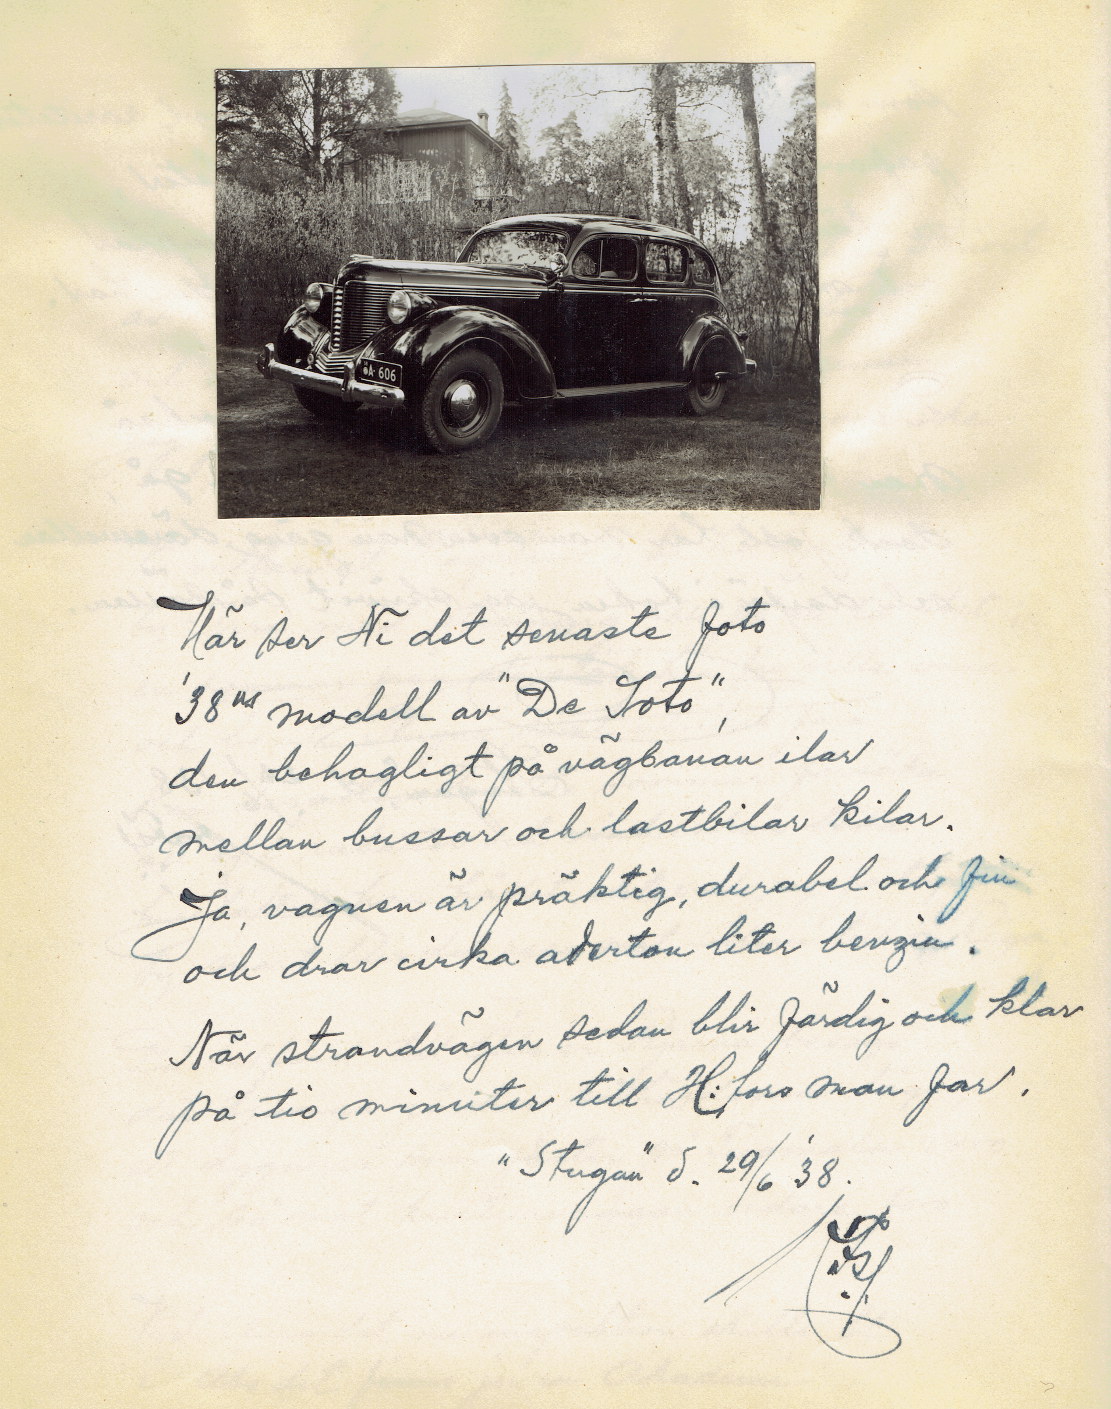 A 606
Här ser Ni det senaste foto
'38ns modell av "De Soto",
den behagligt på vägbanan ilar
mellan bussar och lastbilar kilar.
Ja, vagnen är präktig, durabel och fin
och drar cirka aderton liter benzin.
När strandvägen sedan blir färdig och klar
på tio minuter till H:fors man far.
"Stugan" d. 29/6 '38.